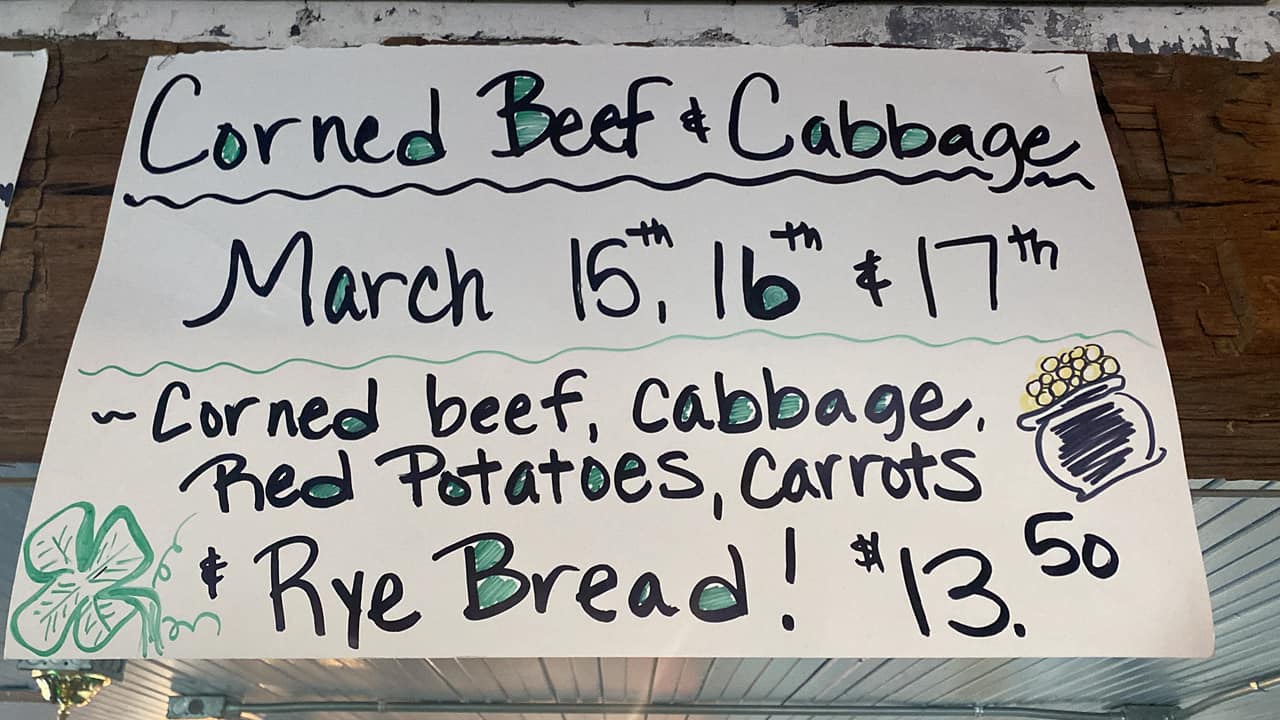 Corned Beef & Cabbage
March 15th, 16th & 17th
~ Corned beef, Cabbage,
Red Potatoes, Carrots
& Rye Bread! $13.50